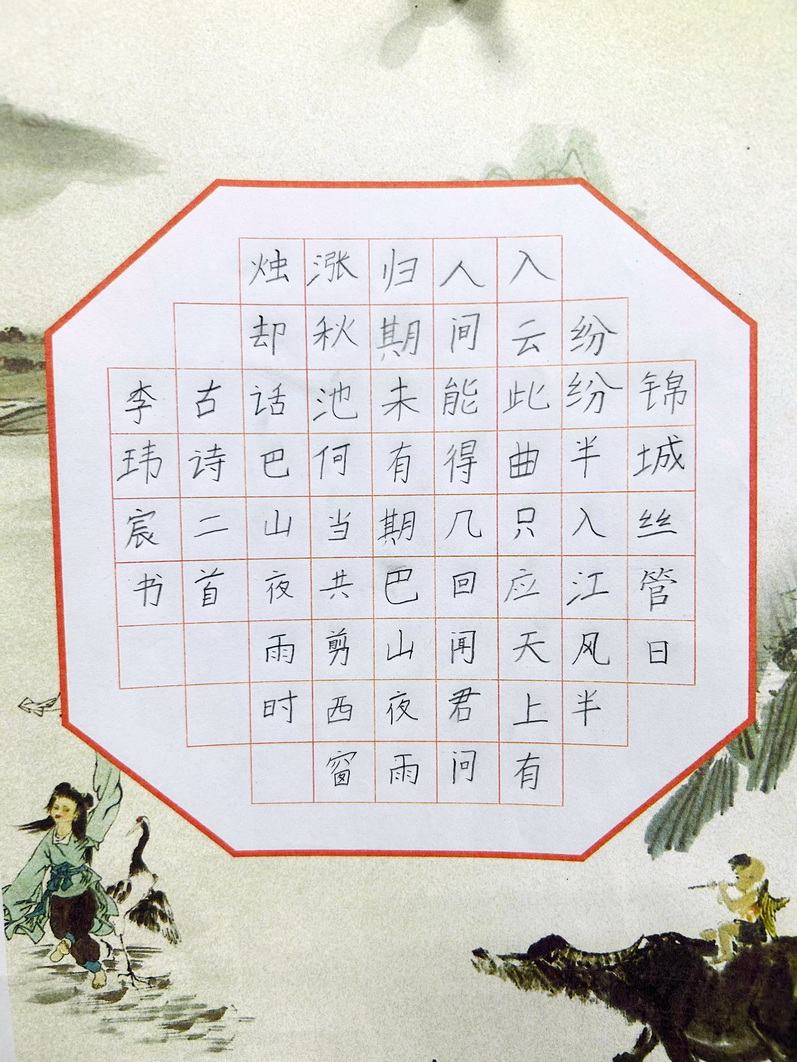 锦城丝管日
纷纷半入江风半
入云此曲只应天上有
人间能得几回闻君问
归期未有期巴山夜雨
涨秋池何当共剪西窗
烛却话巴山夜雨时
古诗二首
李玮宸书